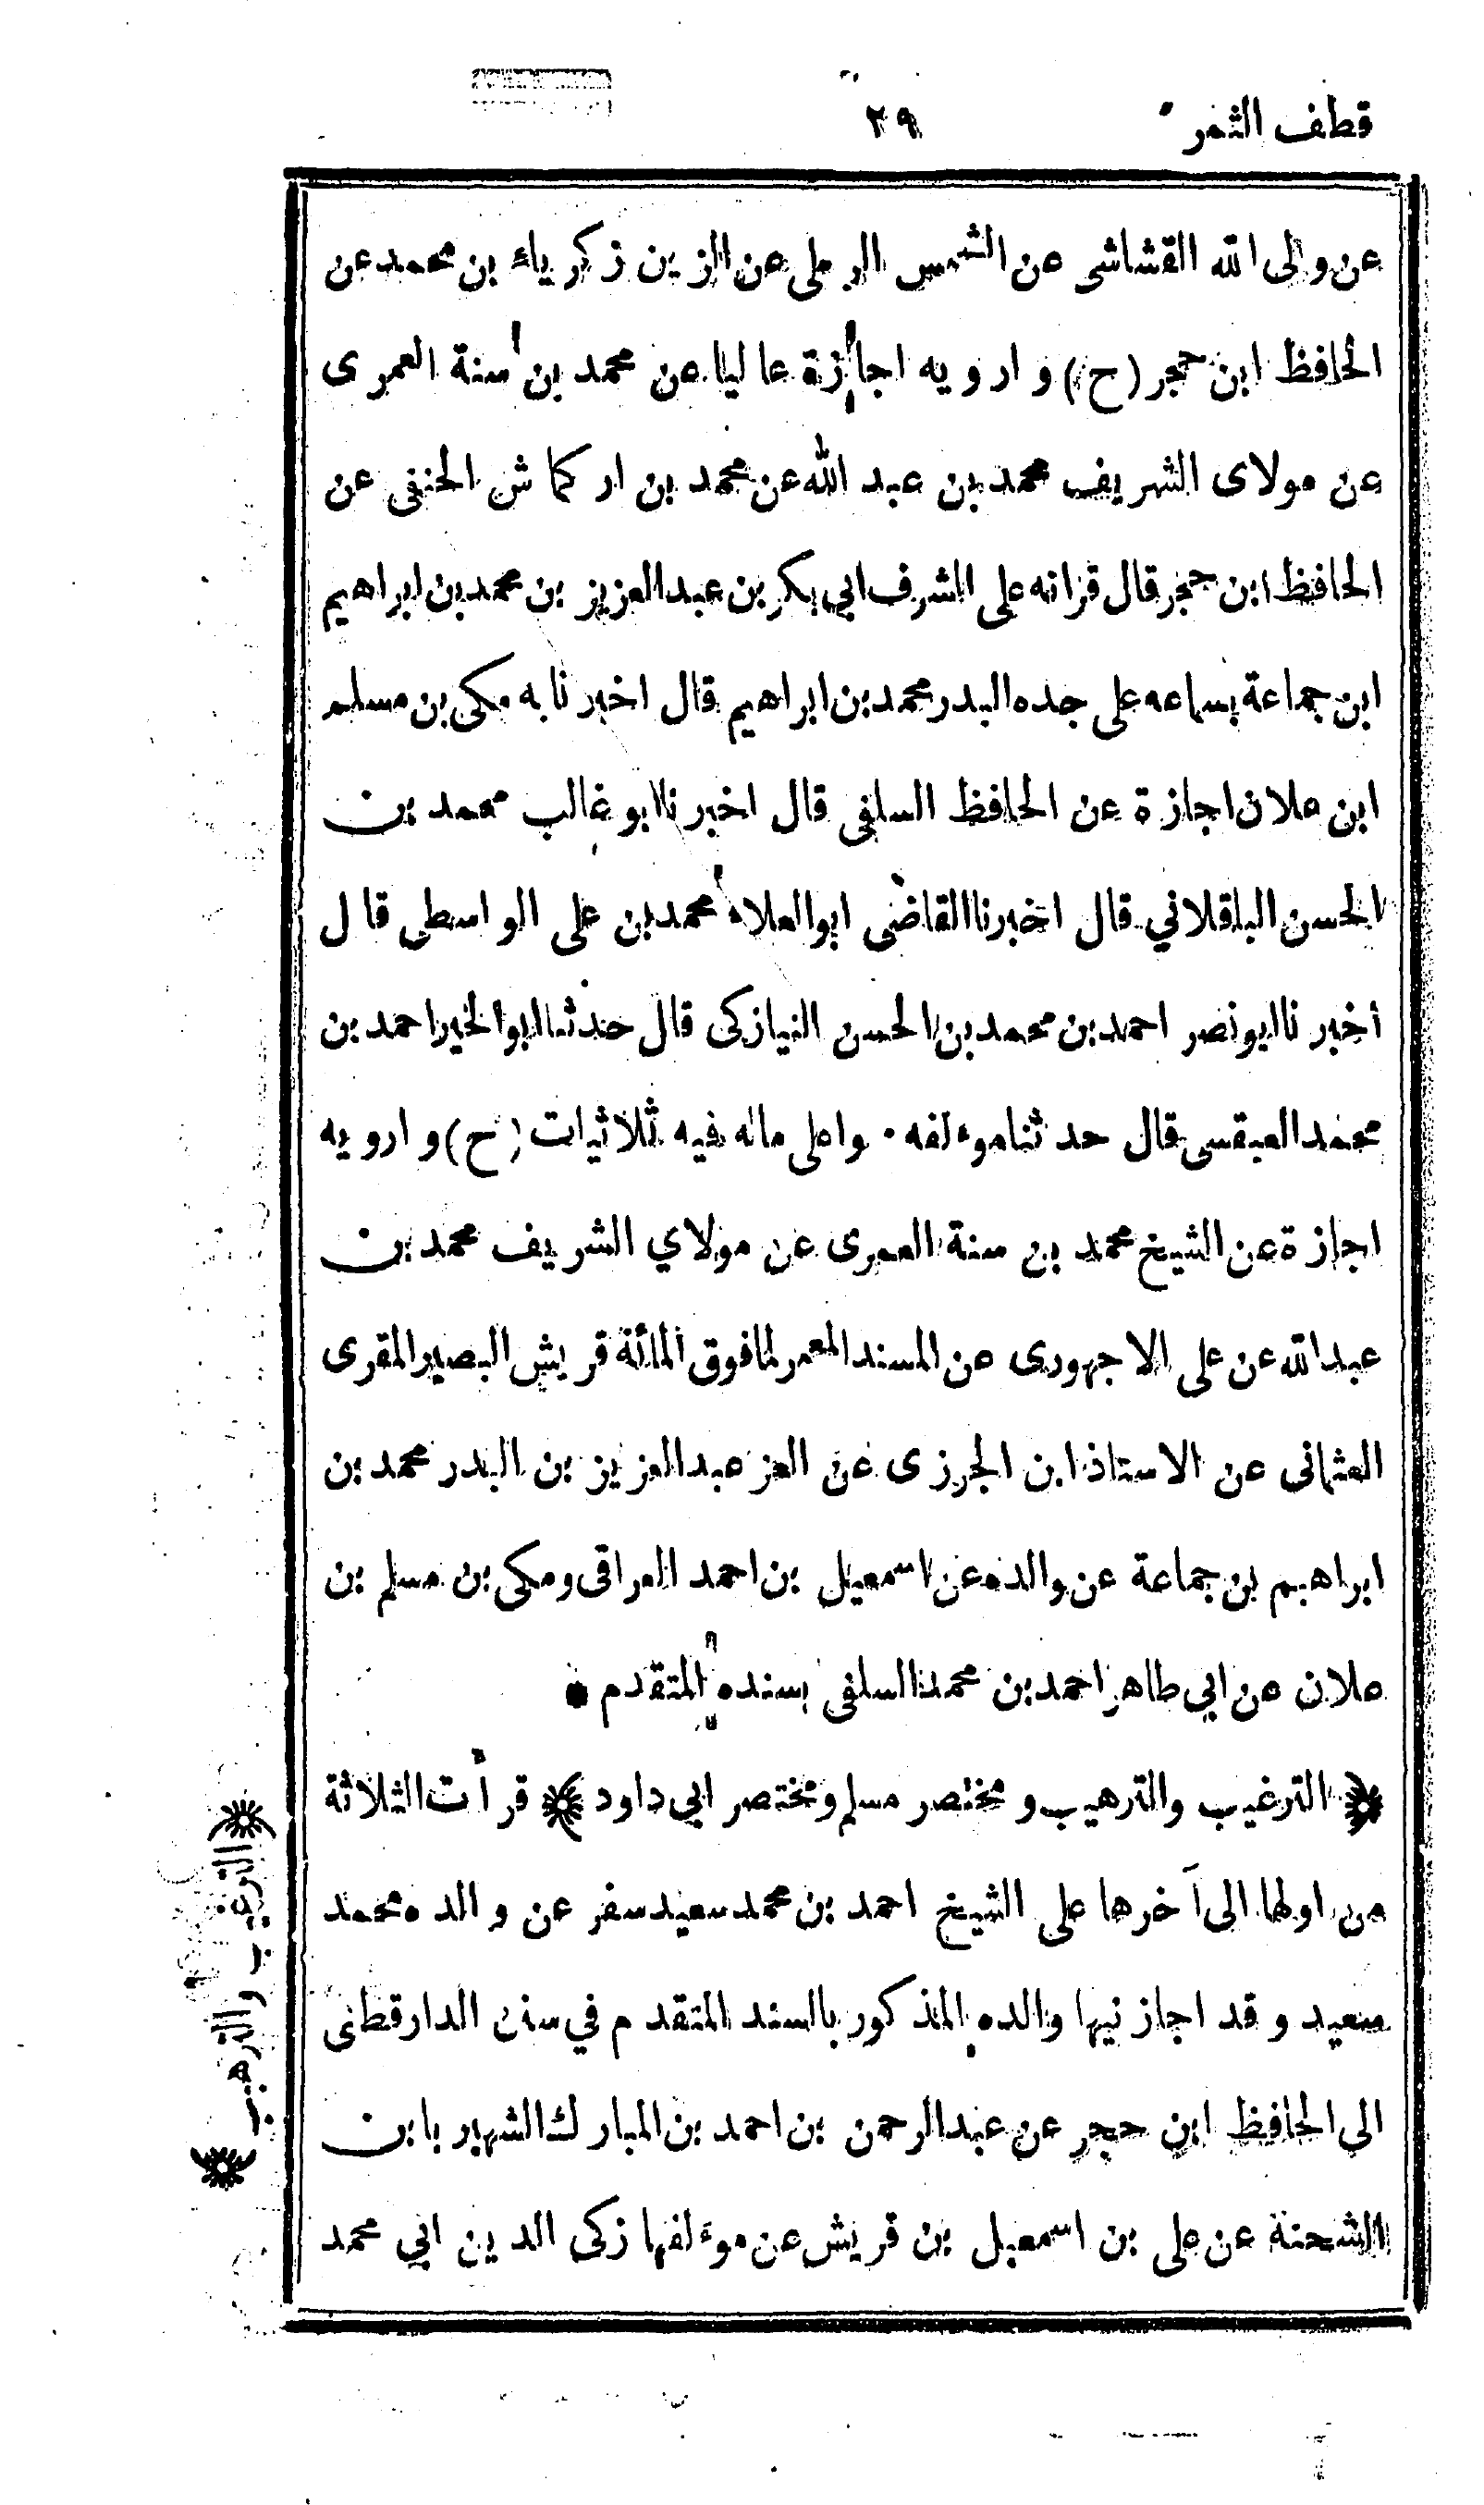 قطف الثمر ٢٩
عن ولى الله القشاشى عن الشمس الرملى عن الزين زكرياء بن محمد عن
الحافظ ابن حجر (ح) وارويه اجازة عاليا عن محمد بن سنة العمرى
عن مولاى الشريف محمد بن عبد الله عن محمد بن اركماش الحنفى عن
الحافظ ابن حجر قال قرأته على الشرف ابي بكر بن عبد العزيز بن محمد بن ابراهيم
ابن جماعة بسماعه على جده البدر محمد بن ابراهيم قال اخبرنا به مكى بن مسلم
ابن علان اجازة عن الحافظ السلفى قال اخبرنا ابو غالب محمد بن
الحسن الباقلاني قال اخبرنا القاضى ابو العلاء محمد بن على الواسطى قال
أخبرنا ابو نصر احمد بن محمد بن الحسن النيازكى قال حدثنا ابو الخير احمد بن
محمد العبقسى قال حدثنا موءلفه ٠ واعلى ماله فيه ثلاثيات (ح) وارويه
اجازة عن الشيخ محمد بن سنة العمرى عن مولاي الشريف محمد بن
عبد الله عن على الاجهورى عن المسند المعمر لما فوق المائة قريش البصير المقرى
العثمانى عن الاستاذ ابن الجرزى عن العز عبد العزيز بن البدر محمد بن
ابراهيم بن جماعة عن والده عن اسمعيل بن احمد العراقى ومكى بن مسلم بن
علان عن ابي طاهر احمد بن محمد السلفى بسنده المتقدم ●
﴿ الترغيب والترهيب و مختصر مسلم ومختصر ابي داود ﴾ قرأت الثلاثة
من اولها الى آخرها على الشيخ احمد بن محمد سعيد سفر عن والده محمد
سعيد وقد اجازنيها والده المذكور بالسند المتقدم في سنن الدارقطنى
الي الحافظ ابن حجر عن عبد الرحمن بن احمد بن المبارك الشهير بابن
الشحنة عن على بن اسمعيل بن قريش عن موءلفها زكى الدين ابي محمد
﴿ الترغيب والترهيب ﴾